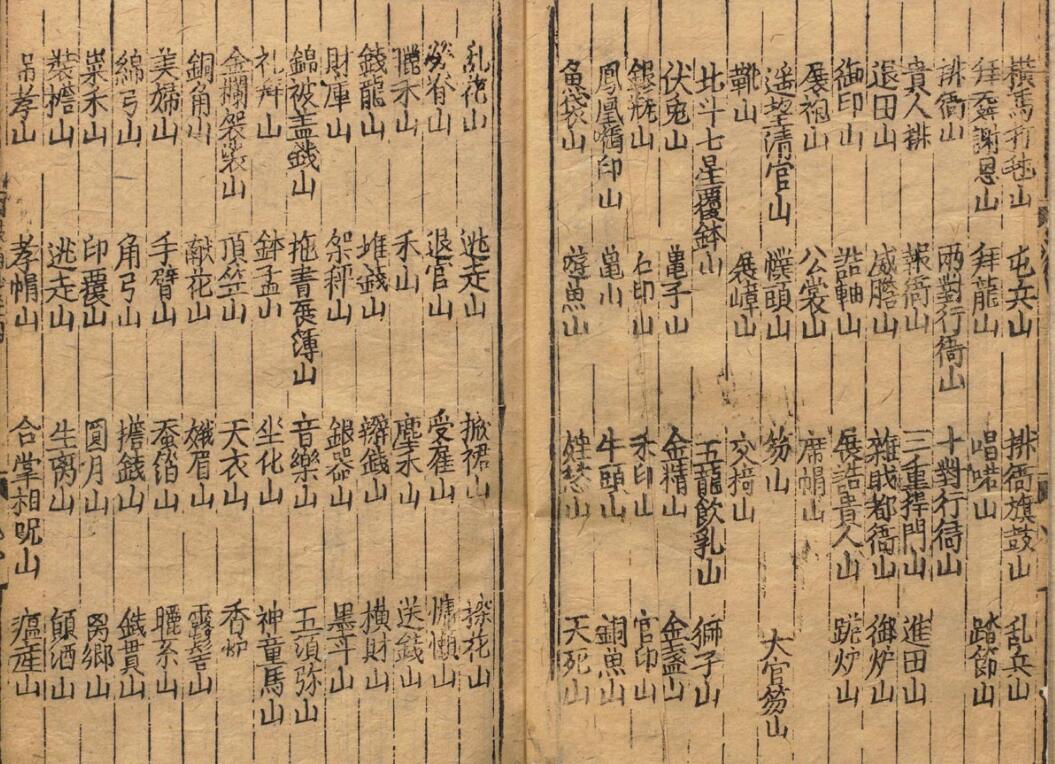 橫馬有毬山 屯兵山 排衙旗鼓山 乱兵山
拜舞謝恩山 拜龍山 唱喏山 踏節山
排衙山 兩對行衙山 十對行衙山
貴人排 報衙山 三重捍門山 進田山
退田山 威膽山 雜戝都衙山 御炉山
御印山 誥軸山 展誥貴人山 跪炉山
展袍山 公裳山 席帽山
遥望清官山 幞頭山 笏山 大官笏山
靴山 展嶂山 交椅山
北斗七星覆鉢山 五龍飲乳山 獅子山
伏兔山 龜子山 金精山 金盞山
銀瓶山 石印山 禾印山 官印山
鳳凰啣印山 龜山 牛頭山 銅魚山
魚袋山 遊魚山 娃愁山 夭死山
乱花山 逃走山 掀裙山 探花山
發眷山 退官山 受雇山 慵懶山
臘禾山 禾山 塵禾山 送錢山
錢龍山 堆錢山 辮錢山 橫財山
財庫山 架秤山 銀器山 墨斗山
錦被盖錢山 拖書展簿山 音樂山 五湏弥山
礼拜山 鉢盂山 坐化山 神童馬山
金襴袈裟山 頂笠山 天衣山 香炉
銅角山 献花山 娥眉山 雲髻山
美婦山 手臂山 蚕箔山 曬糸山
綿弓山 角弓山 擔錢山 錢貫山
粜禾山 印覆山 圓月山 男鄉山
裝擔山 逃走山 生离山 顛酒山
吊孝山 孝帽山 合掌相呪山 瘟㾏山